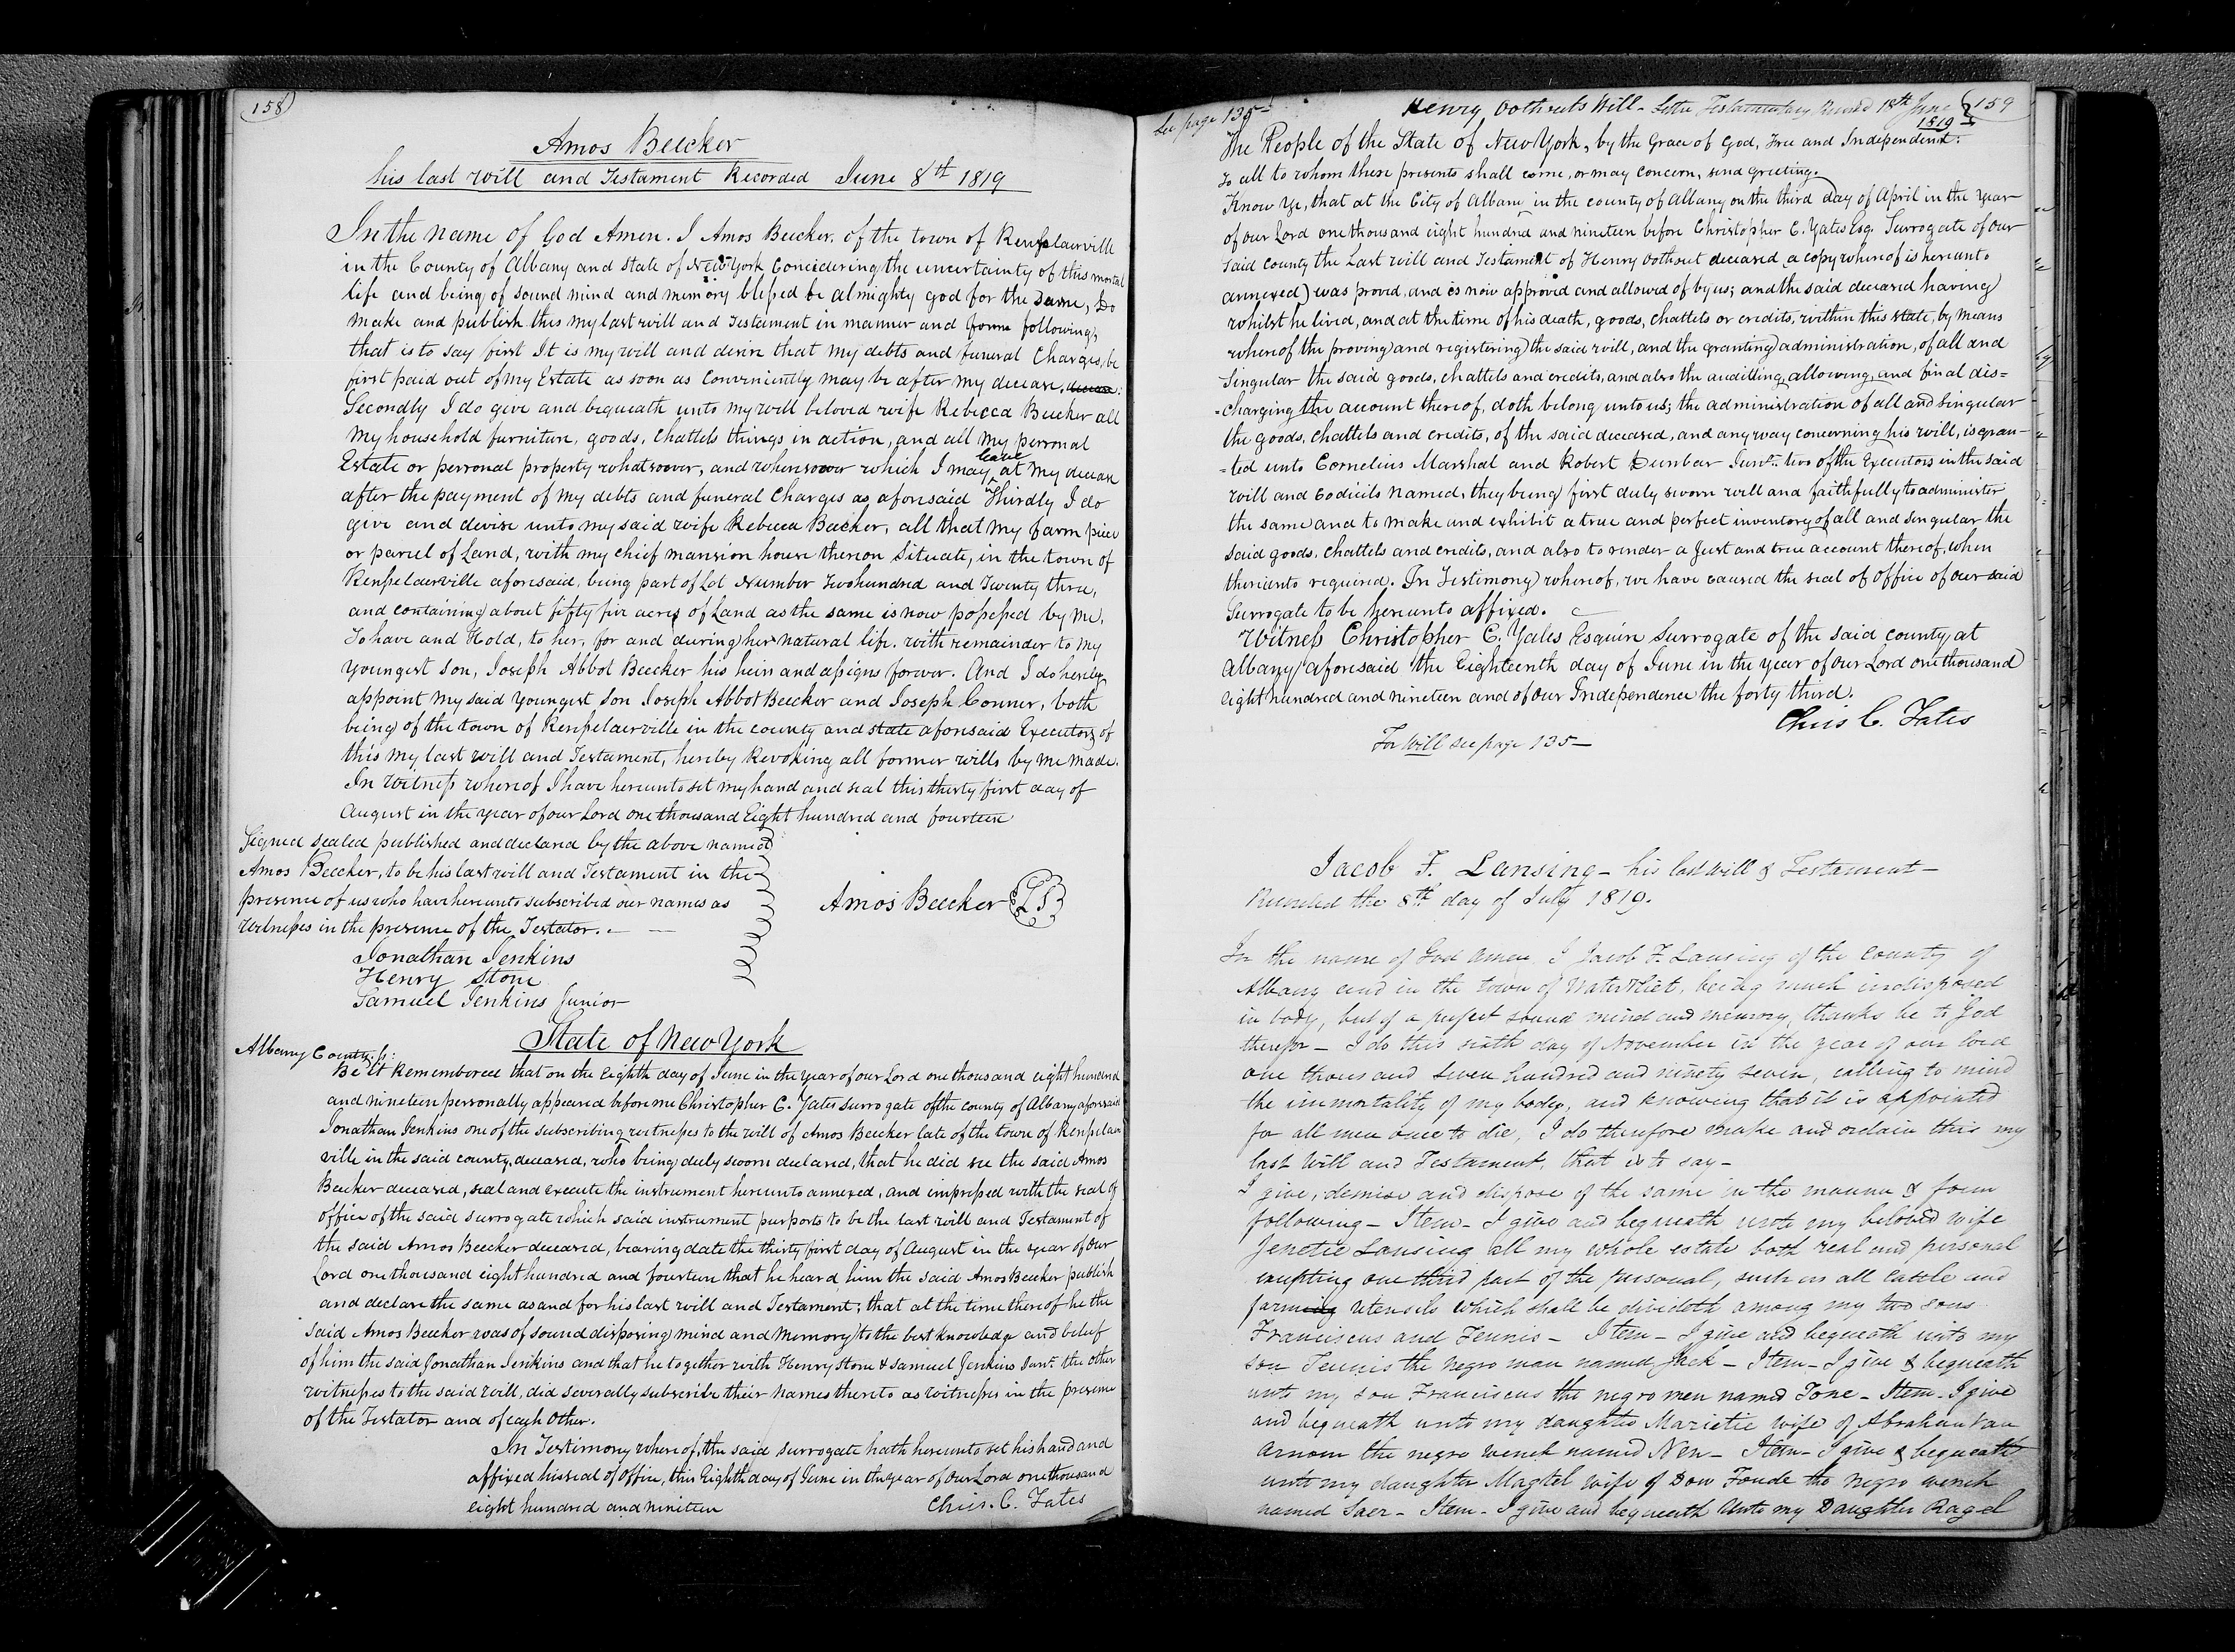 158
Amos Beecker
his last will and Testament Recorded June 8th 1819
In the name of God Amen. I Amos Beecker, of the town of Rensselaerville
in the County of Albany and State of New York, Conscidering the uncertainty of this mortal
life and being of sound mind and memory blessed be almighty god for the same, Do
make and publish this my last will and Testament in manner and forme following,
that is to say first It is my will and desire that my debts and funeral Charges, be
first paid out of my Estate as soon as Conveniently may be after my decease.
Secondly I do give and bequeath unto my well beloved wife Rebecca Beecker all
my household furniture, goods, Chattels things in action, and all my personal
Estate or personal property whatsoever, and wheresoever which I may leave at my decease
after the payment of my debts and funeral Charges as aforesaid Thirdly I do
give and devise unto my said wife Rebecca Beecker, all that my farm piece
or parcel of Land, with my chief mansion house thereon Situate, in the town of
Rensselaerville aforesaid, being part of Lot Number Two hundred and Twenty three,
and containing about fifty five acres of Land as the same is now possessed by me,
To have and Hold, to her, for and during her natural life. with remainder to my
youngest son, Joseph Abbot Beecker his heirs and assigns forever. And I do hereby
appoint my said youngest son Joseph Abbot Beecker and Joseph Conner, both
being of the town of Rensselaerville in the county and state aforesaid Executors of
this my last will and Testament, hereby Revoking all former wills by me made.
In Witness whereof I have hereunto set my hand and seal this thirty first day of
August in the year of our Lord one thousand Eight hundred and fourteen
Signed sealed published and declared by the above named
Amos Beecker, to be his last will and Testament in the
presence of us who have hereunto subscribed our names as
witnesses in the presence of the Testator.
Amos Beecker LS
Jonathan Jenkins
Henry Stone
Samuel Jenkins Junior
State of New York
Albany County ss:
Be it Remembered that on the Eighth day of June in the year of our Lord one thousand eight hundred
and nineteen personally appeared before me Christopher C. Yates surrogate of the county of Albany aforesaid
Jonathan Jenkins one of the subscribing witnesses to the will of Amos Beecker late of the town of Rensselaer
ville in the said county, deceased, who being duly sworn declared, that he did see the said Amos
Beecker deceased, seal and execute the instrument hereunto annexed, and impressed with the seal of
office of the said surrogate which said instrument purports to be the last will and Testament of
the said Amos Beecker deceased, bearing date the thirty first day of August in the year of our
Lord one thousand eight hundred and fourteen that he heard him the said Amos Beecker publish
and declare the same as and for his last will and Testament; that at the time thereof he the
said Amos Beecker was of sound disposing mind and memory to the best knowledge and belief
of him the said Jonathan Jenkins and that he together with Henry Stone & Samuel Jenkins Junr. the other
witnesses to the said will, did severally subscribe their names thereto as witnesses in the presence
of the Testator and of each other.
In Testimony whereof, the said surrogate hath hereunto set his hand and
affixed his seal of office, this Eighth day of June in the year of our Lord one thousand
eight hundred and nineteen
Chris. C. Yates
See page 135
Henry Oothouts Will - Letter Testamentary Record 18th June 1819
159
The People of the State of New York, by the Grace of God, Free and Independent:
To all to whom these presents shall come, or may concern, send greeting.
Know Ye, that at the City of Albany in the county of Albany on the third day of April in the Year
of our Lord one thousand eight hundred and nineteen before Christopher C. Yates Esq. Surrogate of our
said county the Last will and Testament of Henry Oothout deceased (a copy whereof is hereunto
annexed) was proved, and is now approved and allowed of by us; and the said deceased having
whilst he lived, and at the time of his death, goods, chattels or credits, within this state, by means
whereof the proving and registering the said will, and the granting administration, of all and
Singular the said goods, chattels and credits, and also the auditing, allowing, and final dis=
=charging the account thereof, doth belong unto us; the administration of all and singular
the goods, chattels and credits, of the said deceased, and any way concerning his will, is gran-
-ted unto Cornelius Marshal and Robert Dunbar Junr. two of the Executors in the said
will and Codicils named, they being first duly sworn well and faithfully to administer
the same and to make and exhibit a true and perfect inventory of all and singular the
said goods, chattels and credits, and also to render a Just and true account thereof, when
thereunto required. In Testimony whereof, we have caused the seal of office of our said
Surrogate to be hereunto affixed.
Witness Christopher C. Yates Esquire Surrogate of the said county at
Albany aforesaid the Eighteenth day of June in the year of our Lord one thousand
eight hundred and nineteen and of our Independence the forty third.
Chris C. Yates
For Will see page 135-
Jacob F. Lansing - his last will & Testament -
Recorded the 8th day of July 1819.
In the name of God amen, I Jacob F. Lansing of the county of
Albany and in the town of WaterVliet, being much indisposed
in body, but of a perfect sound mind and memory, thanks be to God
therefor - I do this sixth day of November in the year of our lord
one thousand seven hundred and ninety seven, calling to mind
the immortality of my body, and knowing that it is appointed
for all men once to die, I do therefore make and ordain this my
last Will and Testament, that is to say -
I give, demise and dispose of the same in the manner & form
following - Item - I give and bequeath unto my beloved wife
Jenetie Lansing all my whole estate both real and personal
excepting one third part of the personal, such as all Cattle and
farming utensils which shall be divideth among my two sons
Franciscus and Teunis - Item - I give and bequeath unto my
son Teunis the negro man named Jack - Item - I give & bequeath
unto my son Franciscus the negro men named Tone - Item - I give
and bequeath unto my daughter Marietie wife of Abraham Van
Arnom the negro wench named Nen - Item - I give & bequeath
unto my daughter Magtel wife of Dow Fonde the negro wench
named Saer - Item - I give and bequeath unto my Daughter Ragel